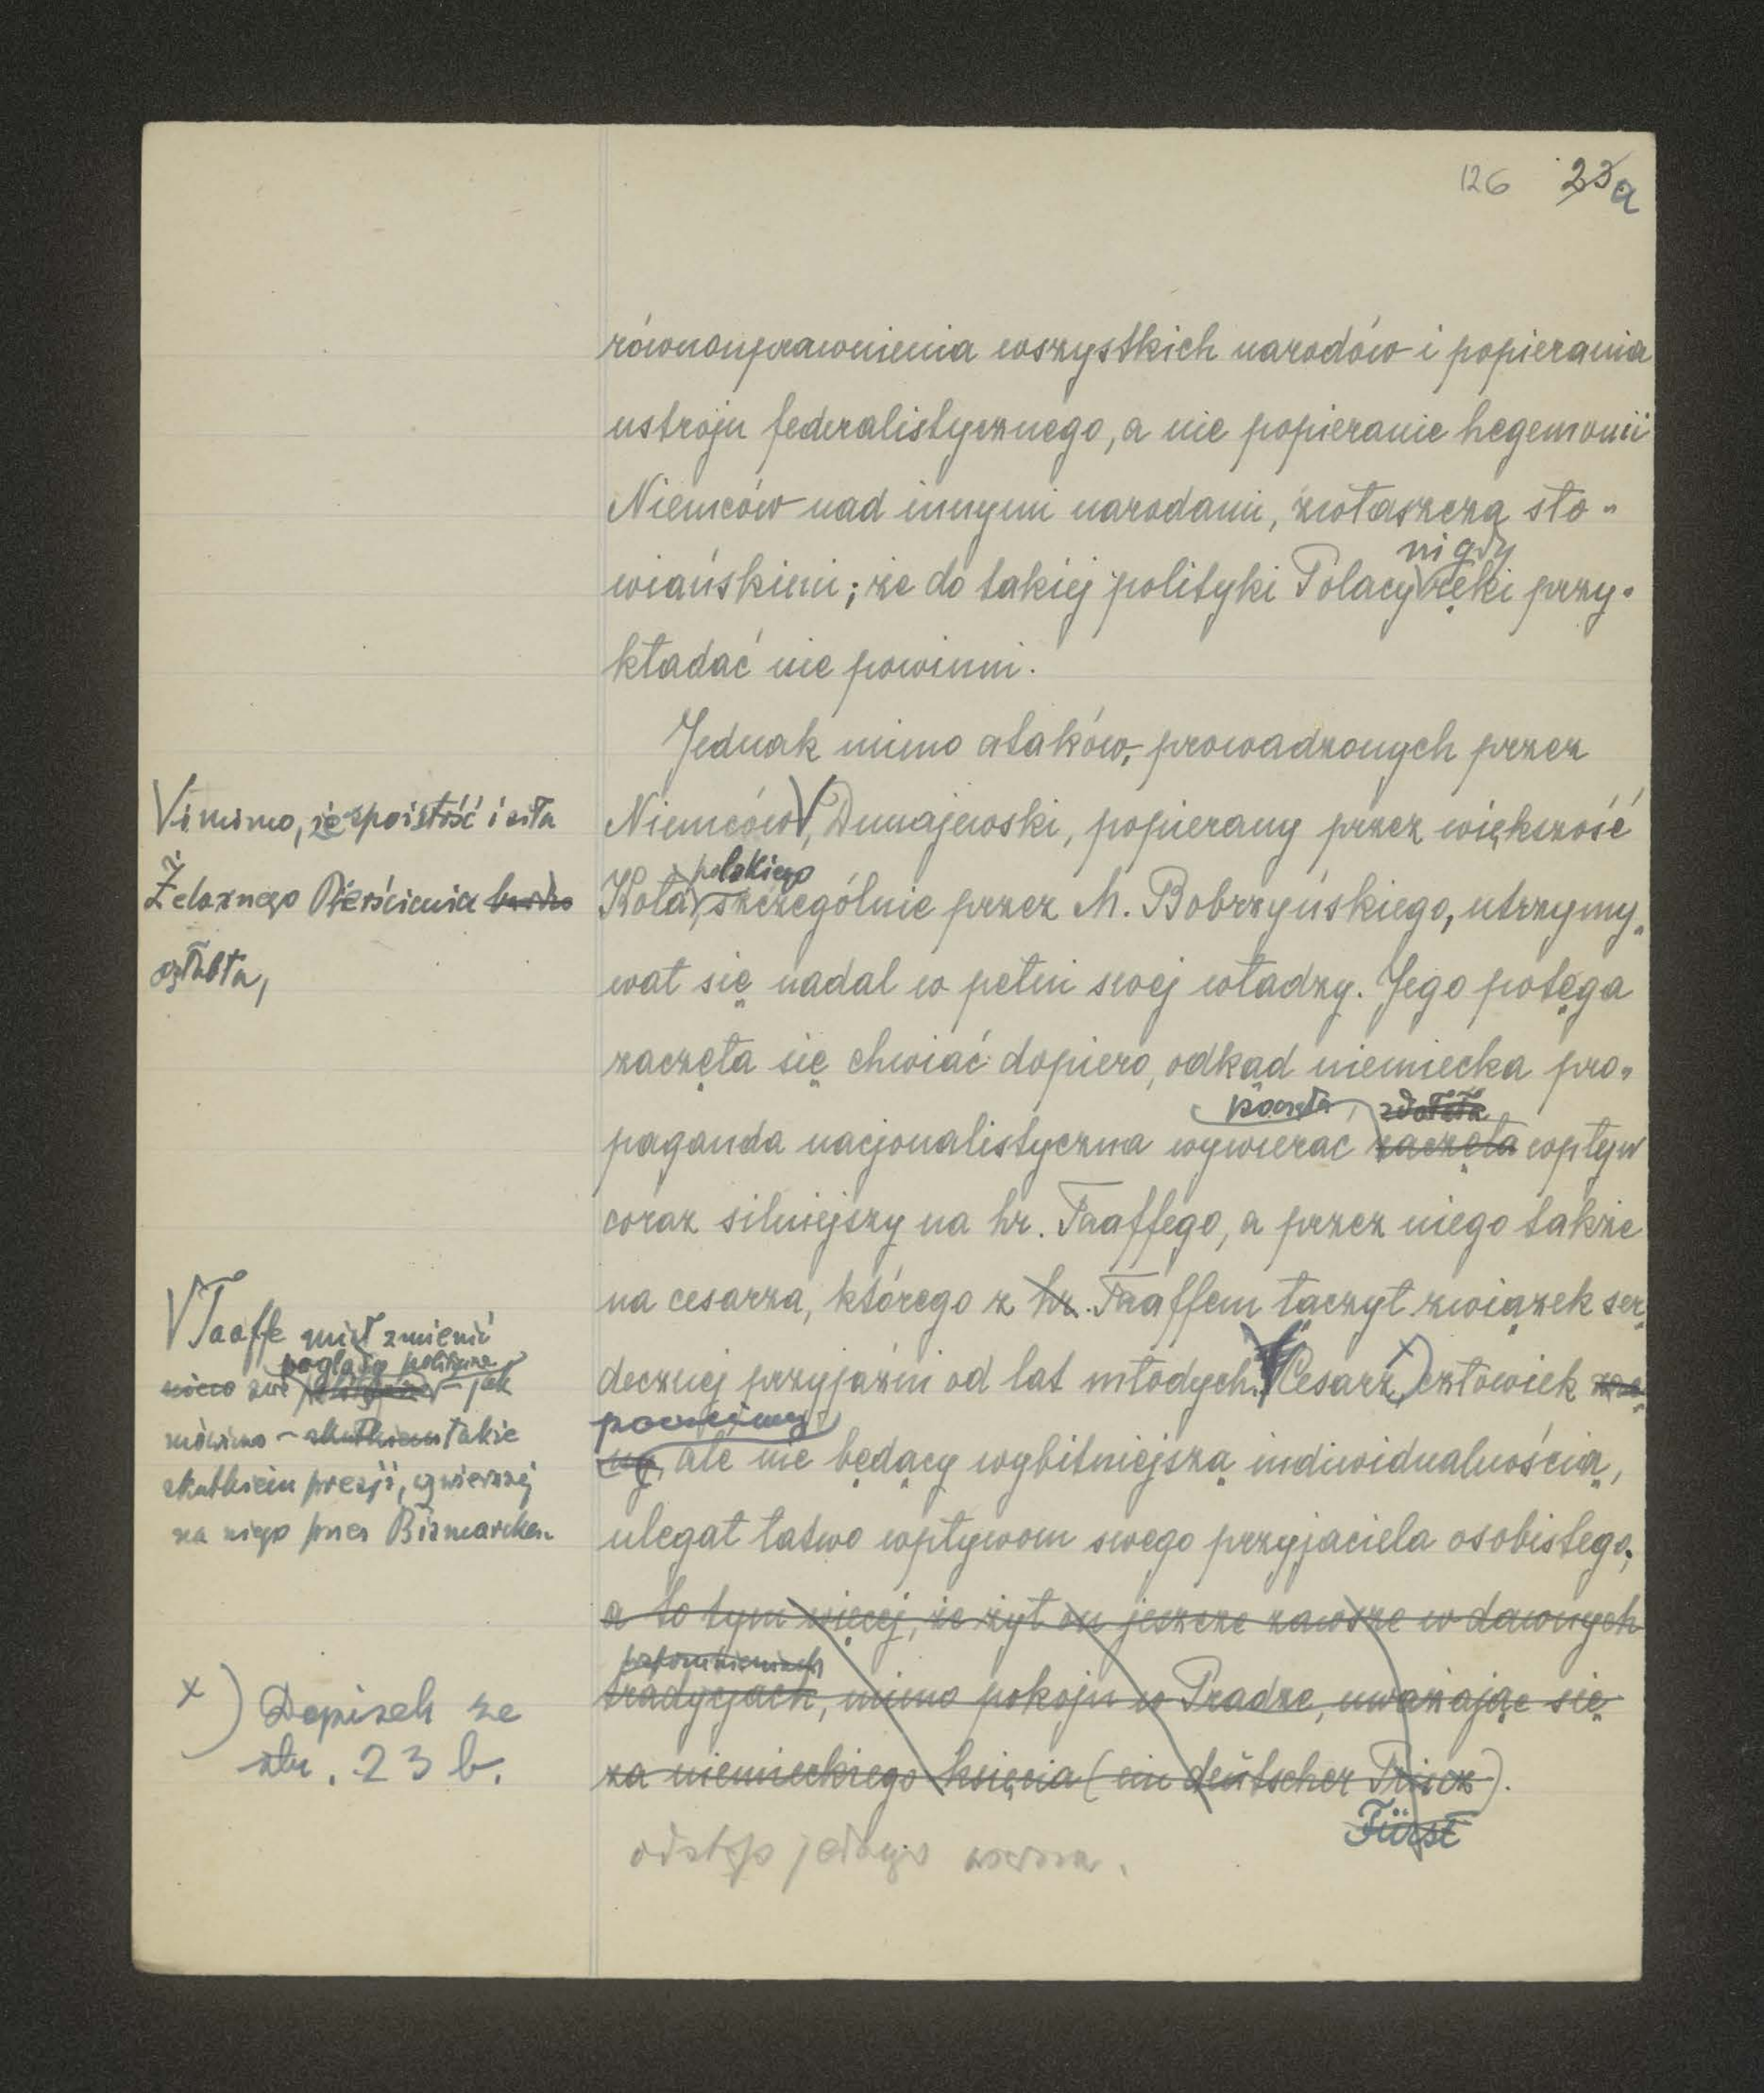 126 23a
równouprawnienia wszystkich narodów i popierania
ustroju federalistycznego, a nie popieranie hegemonii
Niemców nad innymi narodami, zwłaszcza sło„
nigdy
wiańskimi; że do takiej polityki Polacy ręki przy„
kładać nie powinni.
Jednak mimo ataków, prowadzonych przez
Niemców, Dunajewski, popierany przez większość
polskiego
Koła, szczególnie przez M. Bobrzyńskiego, utrzymy„
wał się nadal w pełni swej władzy. Jego potęga
zaczęła się chwiać dopiero, odkąd niemiecka pro„
poczęła zdołała
paganda nacjonalistyczna wywierać zaczęła wpływ
coraz silniejszy na hr. Taaffego, a przez niego także
na cesarza, którego z hr. Taaffem łączył związek ser„
decznej przyjaźni od lat młodych. Cesarz x) człowiek zac„
poczciwy
ny, ale nie będący wybitniejszą indiwidualnością,
ulegał łatwo wpływom swego przyjaciela osobistego,
a to tym więcej, że żył on jeszcze zawsze w dawnych
przypomnieniach
tradycjach, mimo pokoju w Pradze, uważając się
za niemieckiego księcia (ein deutscher Prinz).
Fürst
odstęp jednego wiersza.
V i mimo, że spoistość i siła
Żelaznego Pierścienia bardzo
osłabła,
V Taaffe miał zmienić
poglądy polityczne
nieco swe – jak
mówiono – skutkiem także
skutkiem presji, wywieranej
na niego przez Bismarcka.
x) Dopisek ze
str. 23 b.